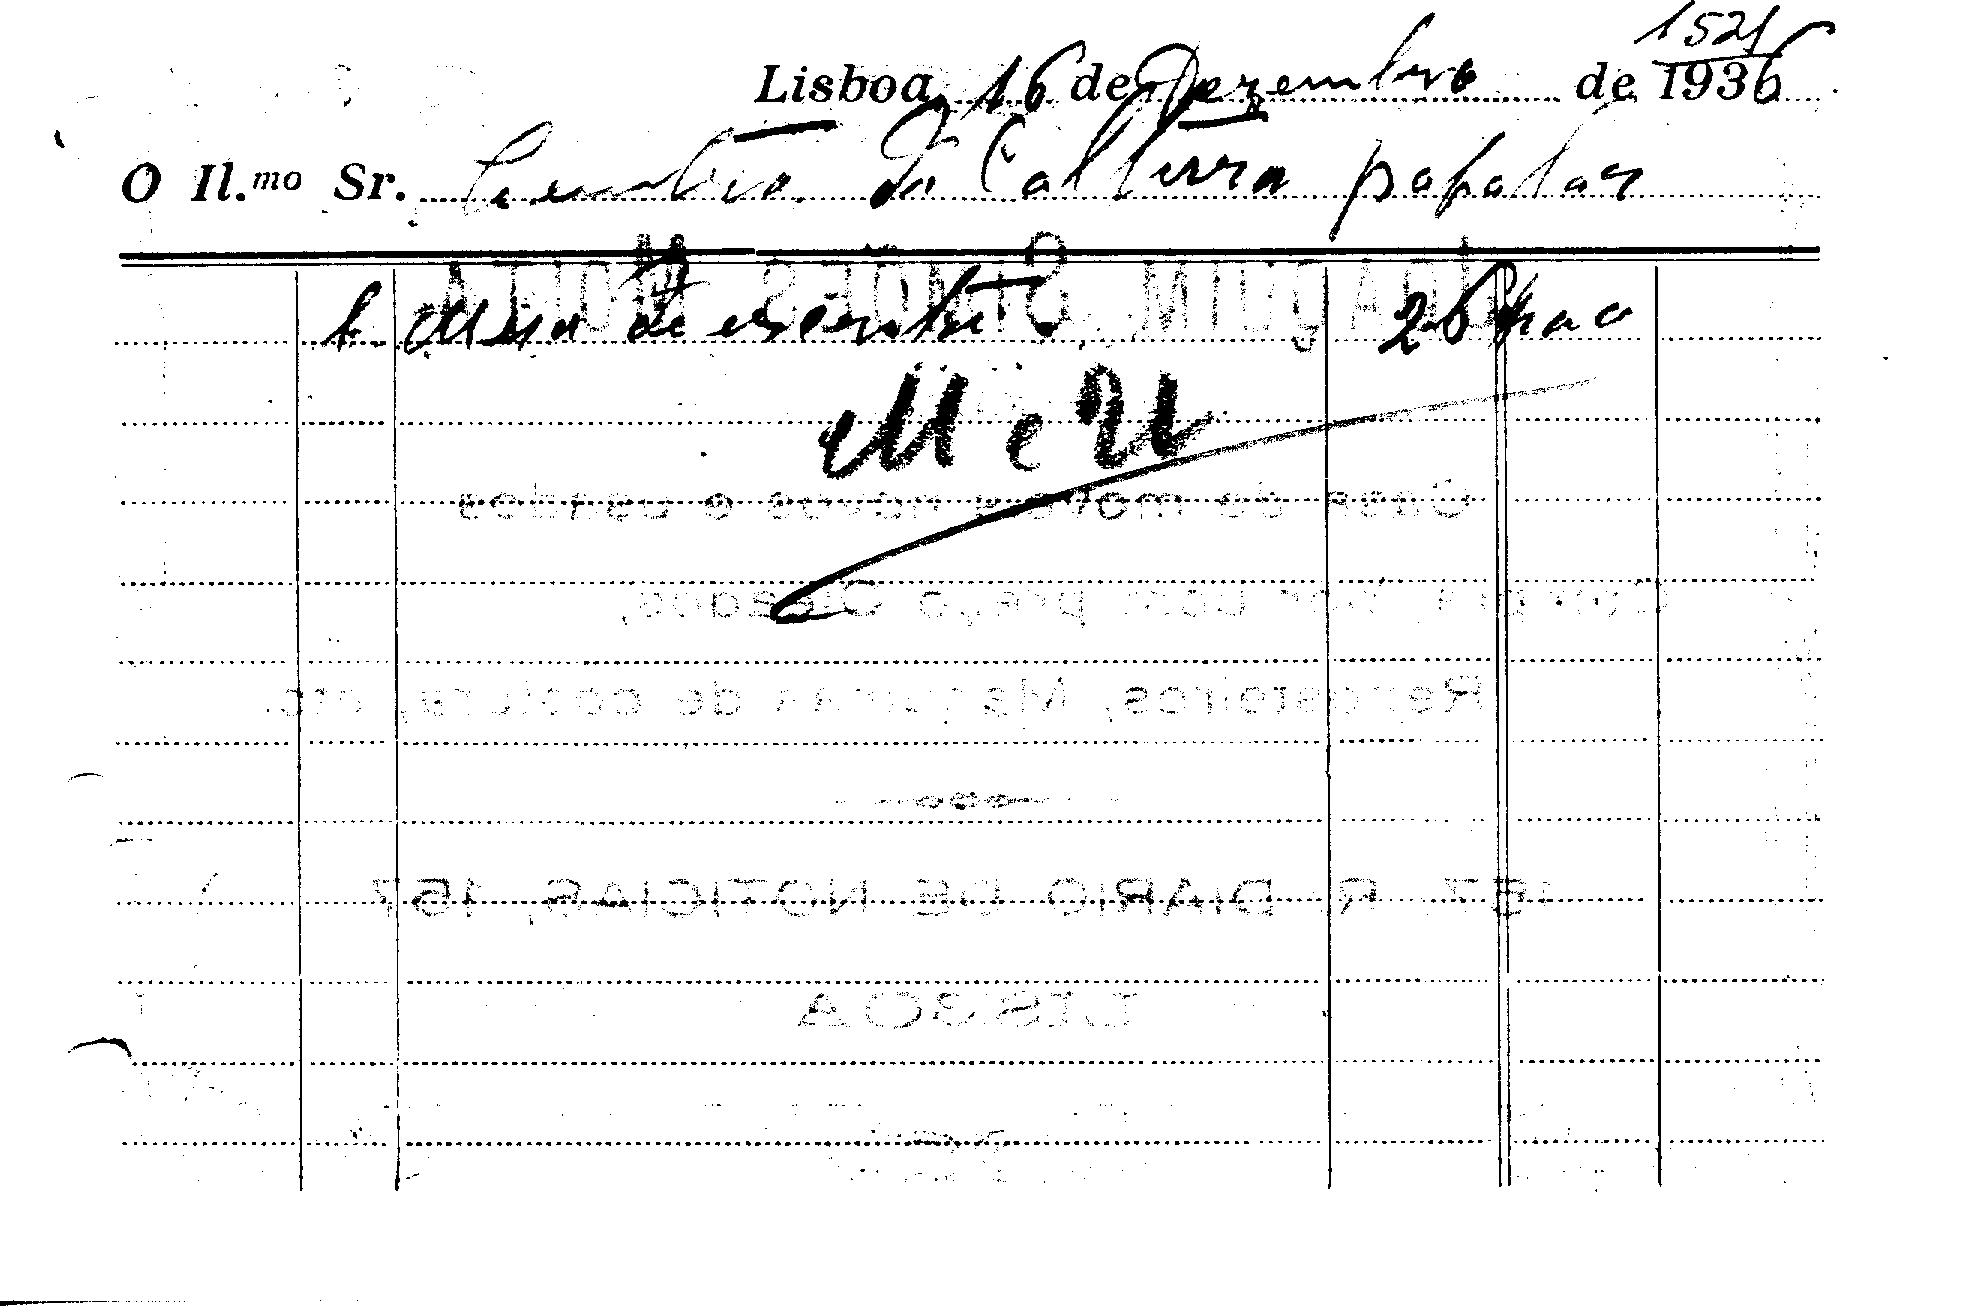 1521
Lisboa, 16 de Dezembro de 1936
O Il.mo Sr. da Cultura popular
1 Mesa de escritorio 26
JOAQUIM SIMÕES MOUTELA
Casa de moveis novos e usados
Compra por bom preço Oleados,
Reposteiros, Maquinas de costura, etc.
157, R. DIARIO DE NOTICIAS, 157
LISBOA